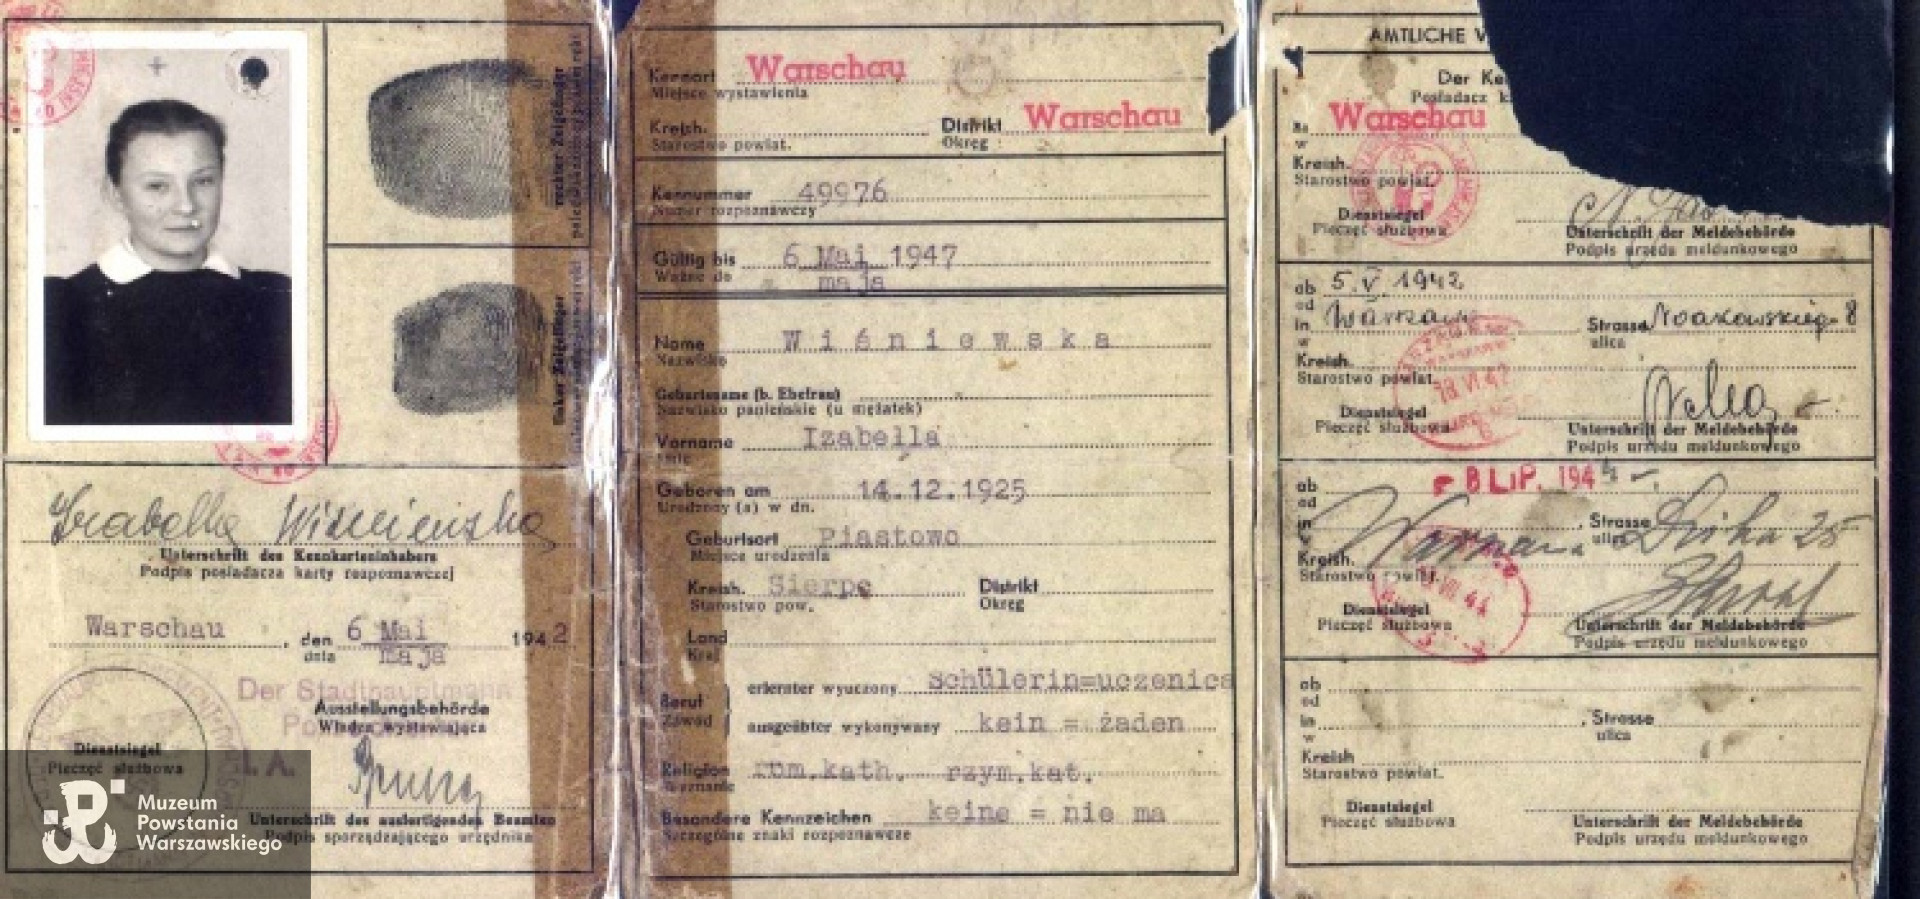 rechter Zeigefinger
linker Zeigefinger
Izabella Wiśniewska
Unterschrift des Kennkarteninhabers
Podpis posiadacza karty rozpoznawczej
Warschau, den 6 Mai 1942
dnia maja
Der Stadthauptmann
Ausstellungsbehörde
Władza wystawiająca
I. A.
Dienstsiegel
Pieczęć służbowa
Unterschrift des ausfertigenden Beamten
Podpis sporządzającego urzędnika
Muzeum
Powstania
Warszawskiego
Kennort Warschau
Miejsce wystawienia
Kreish. Distrikt Warschau
Starostwo powiat. Okręg
Kennummer 49976
Numer rozpoznawczy
Gültig bis 6 Mai 1947
Ważne do maja
Name Wiśniewska
Nazwisko
Geburtsname (b. Ehefrau)
Nazwisko panieńskie (u mężatek)
Vorname Izabella
Imię
Geboren am 14.12.1925
Urodzony (a) w dn.
Geburtsort Piastowo
Miejsce urodzenia
Kreish. Sierpc Distrikt
Starostwo pow. Okręg
Land
Kraj
Beruf erlernter wyuczony Schülerin=uczenica
Zawód ausgeübter wykonywany kein = żaden
Religion röm.kath. rzym.kat.
Wyznanie
Besondere Kennzeichen keine = nie ma
Szczególne znaki rozpoznawcze
AMTLICHE V
Der Ke
Posiadacz k
Warschau
w
Kreish.
Starostwo powiat.
Dienstsiegel
Pieczęć służbowa
Unterschrift der Meldebehörde
Podpis urzędu meldunkowego
ab 5.V 1942
od
in Warszawa Strasse Noakowskiego 8
w ulica
Kreish.
Starostwo powiat.
18 VI 42
Dienstsiegel
Pieczęć służbowa
Unterschrift der Meldebehörde
Podpis urzędu meldunkowego
ab 8 LIP. 1944
od
in Warszawa Strasse Dzika 25
w ulica
Kreish.
Starostwo powiat.
VII 44
Dienstsiegel
Pieczęć służbowa
Unterschrift der Meldebehörde
Podpis urzędu meldunkowego
ab
od
in Strasse
w ulica
Kreish
Starostwo powiat.
Dienstsiegel
Pieczęć służbowa
Unterschrift der Meldebehörde
Podpis urzędu meldunkowego